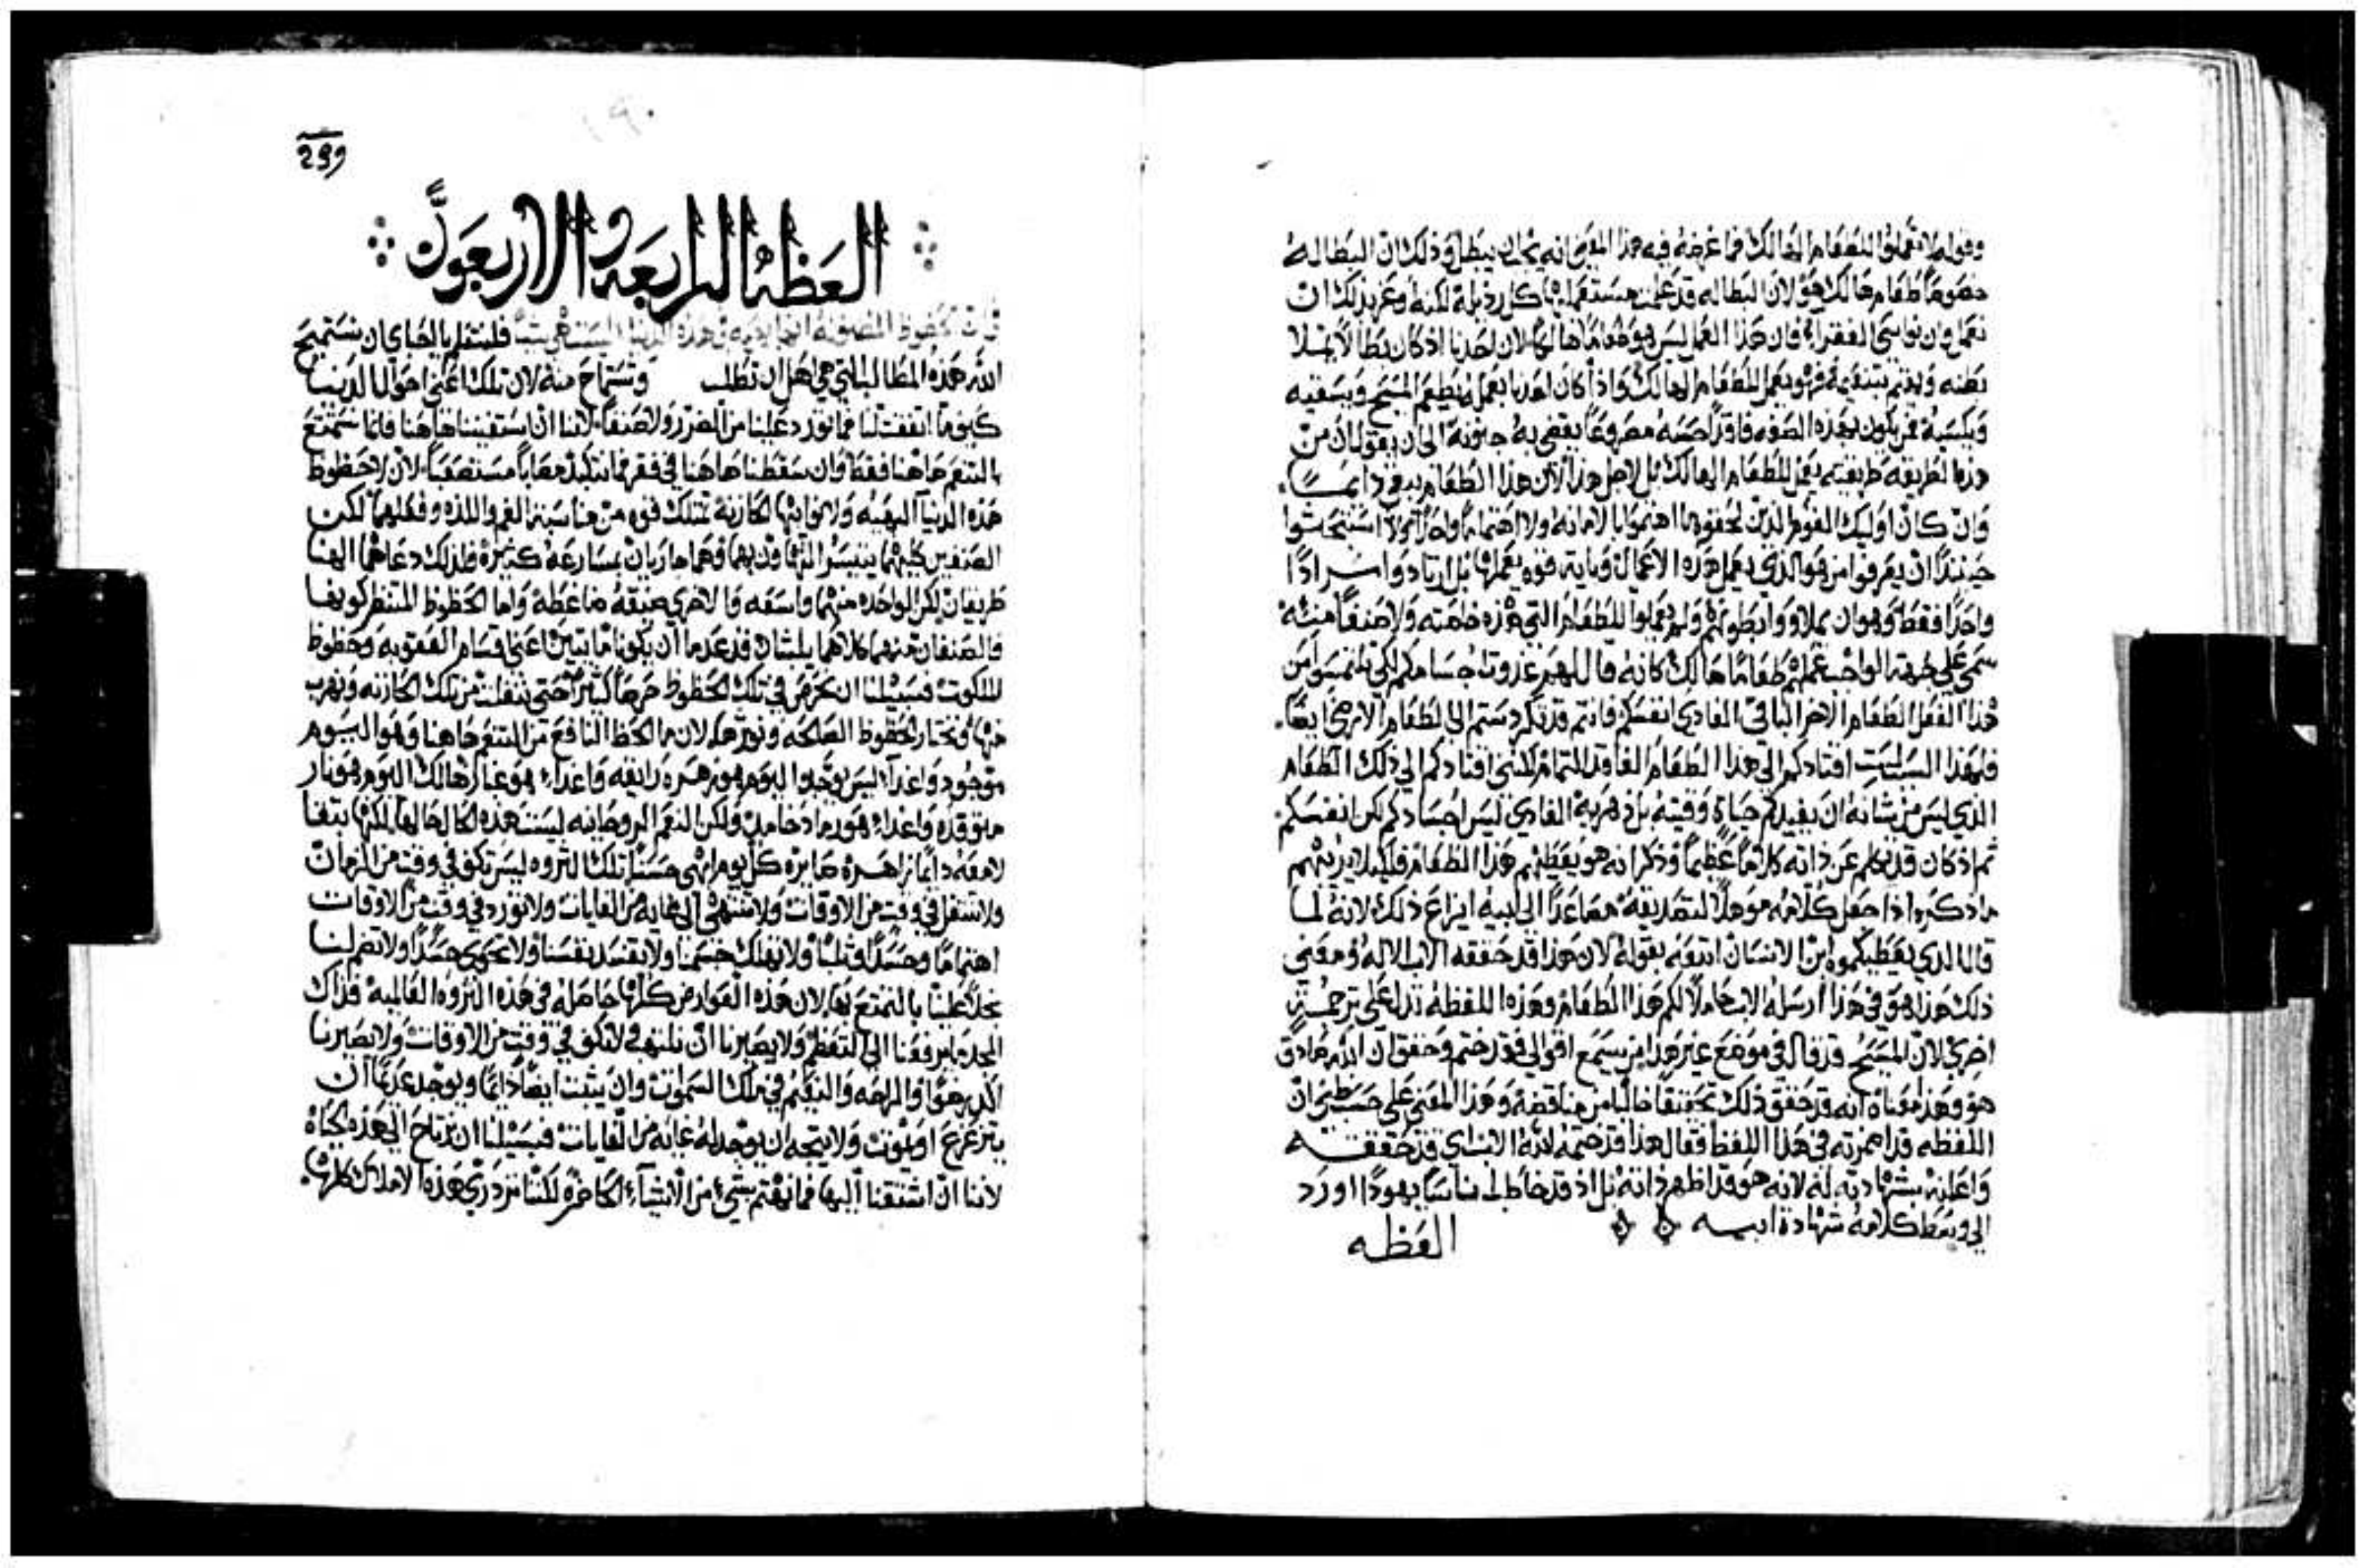 وقوله لا تعملوا للطعام الهالك فما غرضه فيه هذا المعنى انه يجب ان نبطل وذلك ان البطاله
خصوصًا طعام هالك هو لان البطاله قد علمت مستعمليها كل رذيلة لكنه وعز بذلك ان
نعمل وان نواسي الفقراء فان هذا العمل ليس هو طعامًا هالكًا لان احدنا اذ كان بطالًا يملا
بطنه ويهتم بتنعيمه فهو يعمل للطعام الهالك واذا كان احدنا يعمل ليطعم المسيح ويسقيه
ويكسيه فمن يكون بهذه الصفه فاقدًا حسه مصروعًا يفضي به جنونه الى ان يقول ان من
هذه الطريقه طريقته يعمل للطعام الهالك بل لاجل هذا لان هذا الطعام يبقى دايمـــًا
وان كان اوليك القوم الذين لحقوه ما اهتموا بالامانه ولا اهتمامًا واحدًا ولا استبحثوا
حينئذًا ان يعرفوا من هو الذي يعمل هذه الاعمال وباية قوه يعملها بل ارتادوا مـــرادًا
واحدًا فقط وهو ان يملاوا بطونهم ولم يعملوا للطعام التي هذه خاصته ولا صنفًا منــه
سمى على جهة الواجب عملهم طعامًا هالك كانه قال لهم غذوت اجسامكم لكي تلتمسوا من
هذا الفعل الطعام الاخر الباقي الغادي انفسكم فانتم قد تكردستم الى الطعام الارضي ايضًا
فلهذا السبب لست اقتادكم الي هذا الطعام الفاقد التمام لكنني اقتادكم الي ذلك الطعام
الذي ليس من شانه ان يفيدكم حياة وقتيه بل دهرية الغادي ليس اجسادكم لكن انفسكم
ثم اذ كان قد تكلم عن ذاته كلامًا عظيمًا وذكر انه هو يعطيهم هذا الطعام فلكيلا يريبهم
ما ذكره اذا جعل كلامه موهلًا لتصديقه مصاعدًا الى ابيه ايزاع ذلك لانه لمـــا
قال الذي يعطيكموه ابن الانسان اتبعه بقوله لان هذا قد حققه الاب الاله ومعنى
ذلك هذا هو في هذا ارسله الاب حاملًا لكم هذا الطعام وهذه اللفظه تدل على ترجمــة
اخرى لان المسيح قد قال في موضع غير هذا من يسمع اقوالي فقد ختم وحقق ان الله صادق
هو وهذا معناه انه قد حقق ذلك تحقيقًا خاليًا من مناقضة وهذا المعنى على حسب ظني ان
اللفظه قد اضمرته في هذا اللفظ فقال هذا قد ختمه الله الاب اي قد حققـــه
واعلنه بشهادته له لانه هو قد اظهر ذاته بل اذ قد خاطب ناسًا يهودًا اورد
الي وسط كلامه شهادة ابيـــه
العظه
299
العظة الرابعه والاربعون
فلنتعلم يا احباي ان نستميح
الله هذه المطالب التي هي اهل ان تطلب وتستماح منه لان تلك اعني احوال الدنيـا
كيفما اتفقت لنا فما تورد علينا من الضرر ولا صنفًا لاننا ان استغنينا هاهنا فانما نتمتع
بالتنعم هاهنا فقط وان سقطنا هاهنا في فقر فما نتكبد مصابًا مستصعبًا لان لا حظوظ
هذه الدنيا البهيه ولا نوايبها الحازنة تمتلك قوه من مناسبة الغم واللذه وفعلهما لكن
الصنفين كليهما يتيسر التهاون بهما وهما جاريان بمسارعة كثيرة فلذلك دعاهما الهنا
طريقان لكن الواحده منهما واسعه والاخري ضيقه ضاغطة واما الحظوظ المنتظر كونها
فالصنفان منهما كلاهما يلبثان قد عدما ان يكونا مايتين اعني اقسام العقوبه وحظوظ
الملكوت فسبيلنا ان نحرص في تلك الحظوظ حرصًا كثيرًا حتى ننفلت من تلك الحازنه ونهرب
منها ونختار الحظوظ الصالحه ونوثرها لان ما الحظ النافع من التنعم هاهنا وهو اليــوم
موجود واغدًا ليس يوجد اليوم هو زهره رايقه واغداء هو غبار هالك اليوم هو نار
متوقده واغداء هو رماد خامد ولكن النعم الروحانيه ليست هذه الحال حالها لكنها تبقا
لامعه دايمًا زاهـــره صايره كل يوم ابهى حسنًا تلك الثروه ليس تكف في وقت من الزمان
ولا تنتقل في وقت من الاوقات ولا تنتهي الى نهايه من الغايات ولا تورد في وقت من الاوقات
اهتمامًا وحسدًا وثلبًا ولا تهلك جسمنا ولا تفسد نفسنا ولا تحوى حسدًا ولا تضم لنـا
بخلًا علينا بالتمتع بها لان هذه العوارض كلها حاصله في هذه الثروه العالميه فذاك
المجد ما يرفعنا الى التعظم ولا يصيرنا ان نلتهف ولا نكف في وقت من الاوقات ولا يصيرنا
يتزعزع او يموت ولا يتجه ان يوجد له غايه من الغايات فسبيلنا ان نرتاح الي هذه الحياة
لاننا ان اشتقنا اليها فما نهتم بشيء من الاشياء الحاضره لكننا نزدري هذه الاملاك كلها